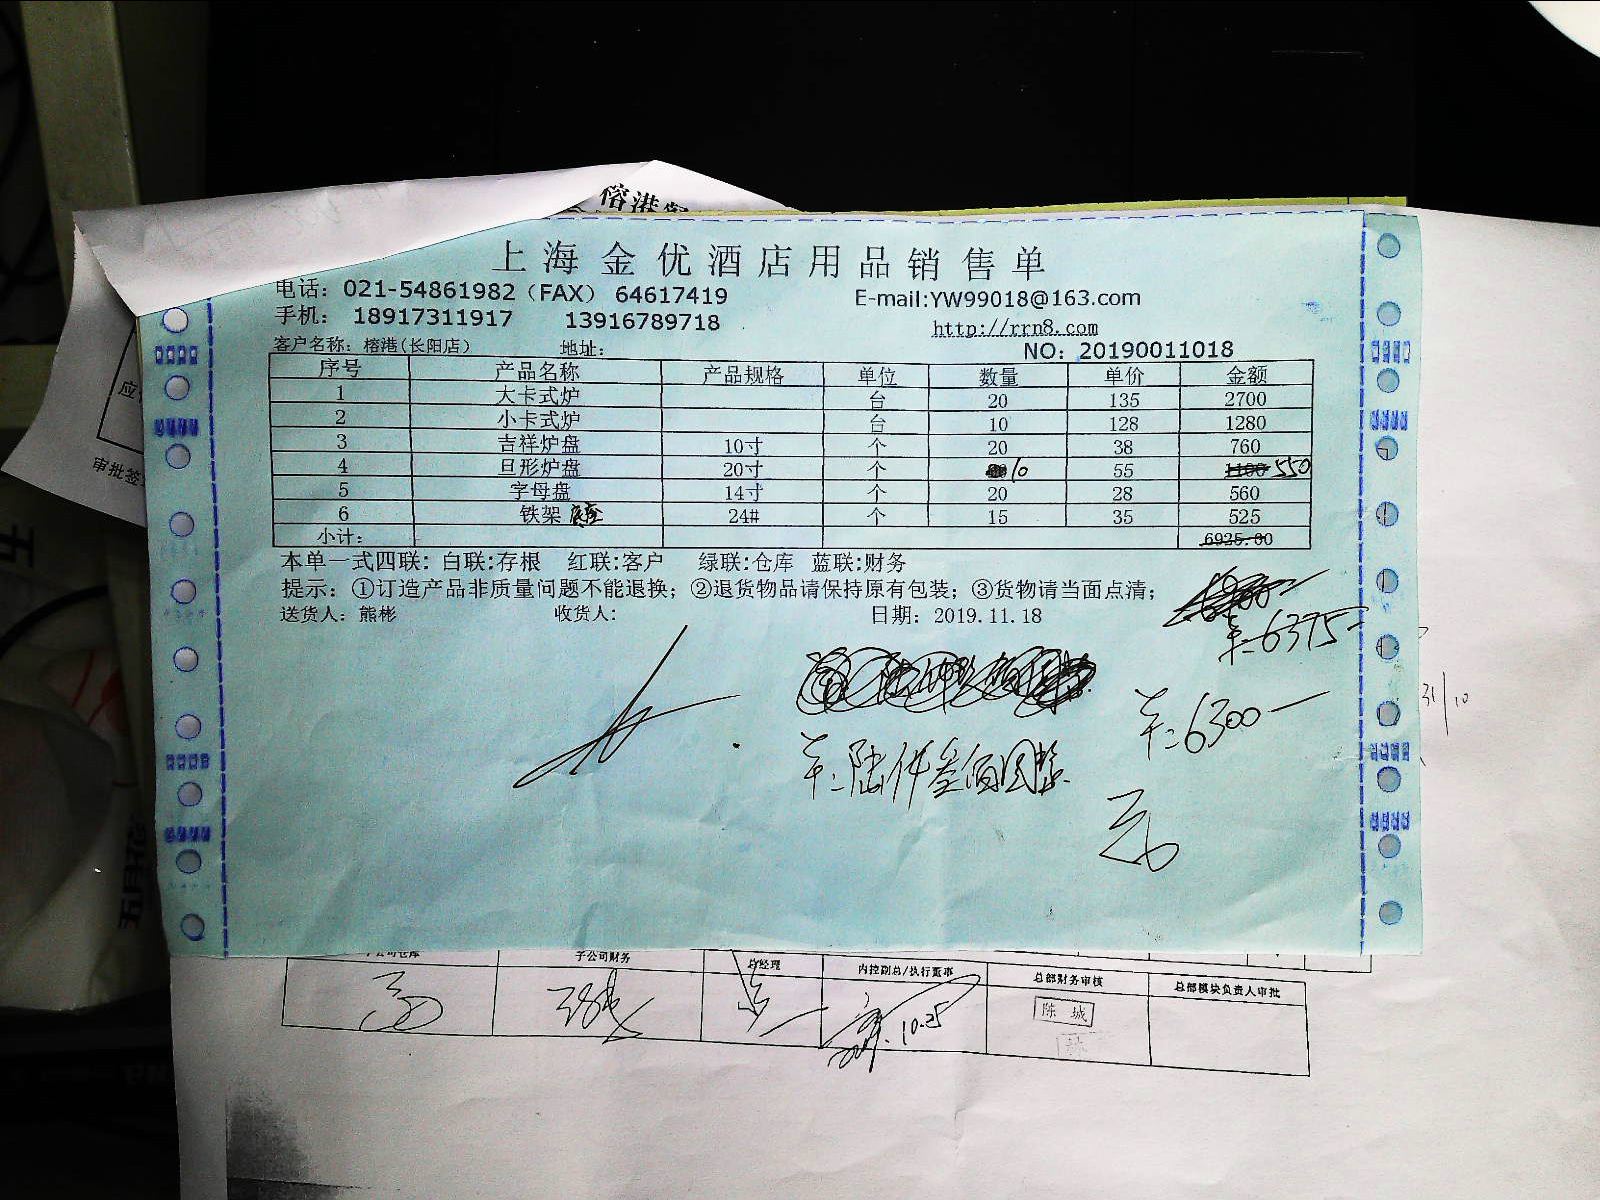 榕港
上海金优酒店用品销售单
电话：021-54861982（FAX） 64617419 E-mail:YW99018@163.com
手机： 18917311917 13916789718 http://rrn8.com
客户名称：榕港(长阳店) 地址： NO：20190011018
序号 产品名称 产品规格 单位 数量 单价 金额
1 大卡式炉 台 20 135 2700
2 小卡式炉 台 10 128 1280
3 吉祥炉盘 10寸 个 20 38 760
4 旦形炉盘 20寸 个 10 55 1100 550
5 字母盘 14寸 个 20 28 560
6 铁架 底座 24# 个 15 35 525
小计： 6925.00
本单一式四联：白联:存根 红联:客户 绿联:仓库 蓝联:财务
提示：①订造产品非质量问题不能退换；②退货物品请保持原有包装；③货物请当面点清；
送货人：熊彬 收货人: 日期：2019.11.18
6375
6300
陆仟叁佰圆整
31/10
应
审批签
子公司财务 总经理 内控副总/执行董事 总部财务审核 总部模块负责人审批
10.25 陈城